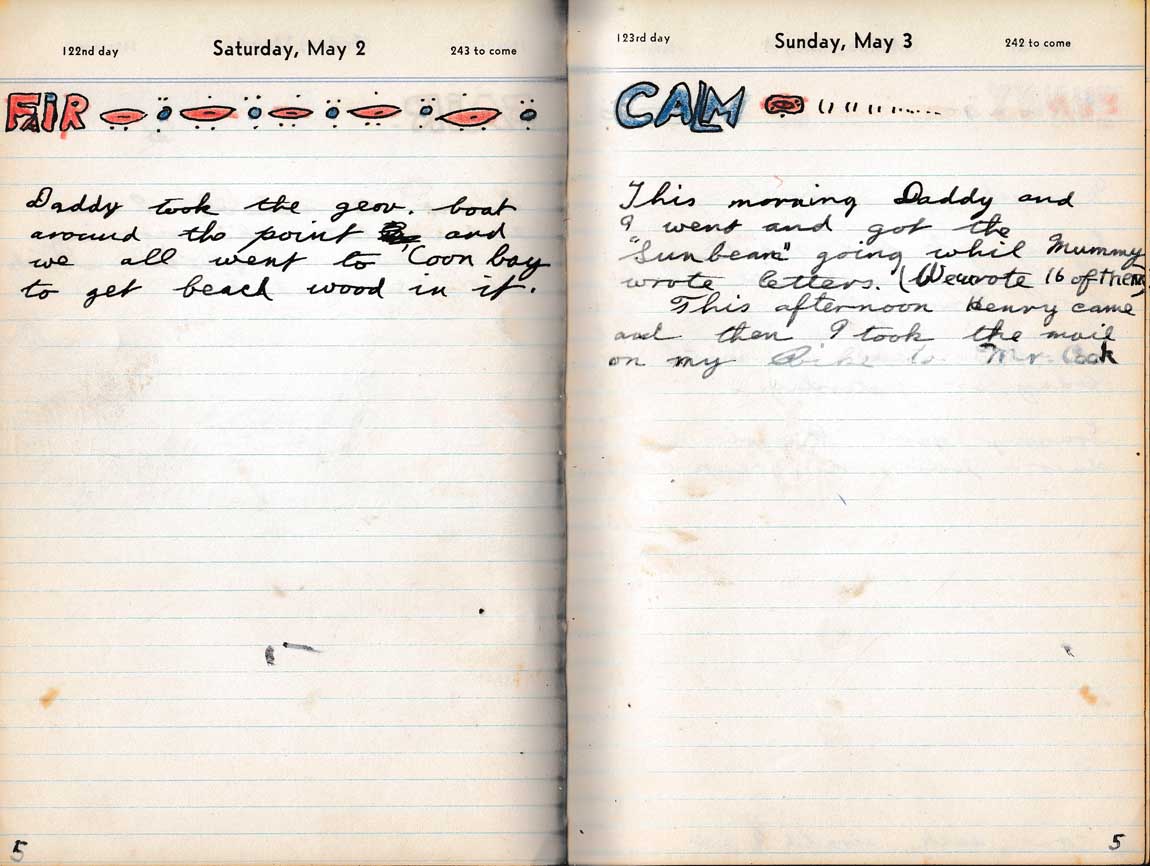 122nd day Saturday, May 2 243 to come
FAIR
Daddy took the geov. boat
around the point and
we all went to "Coon bay
to get beach wood in it.
5
123rd day Sunday, May 3 242 to come
CALM
This morning Daddy and
I went and got the
"Sunbeam" going whil Mummy
wrote letters. (We wrote 16 of them)
This afternoon Henry came
and then I took the mail
on my Bike to Mr. Cook
5